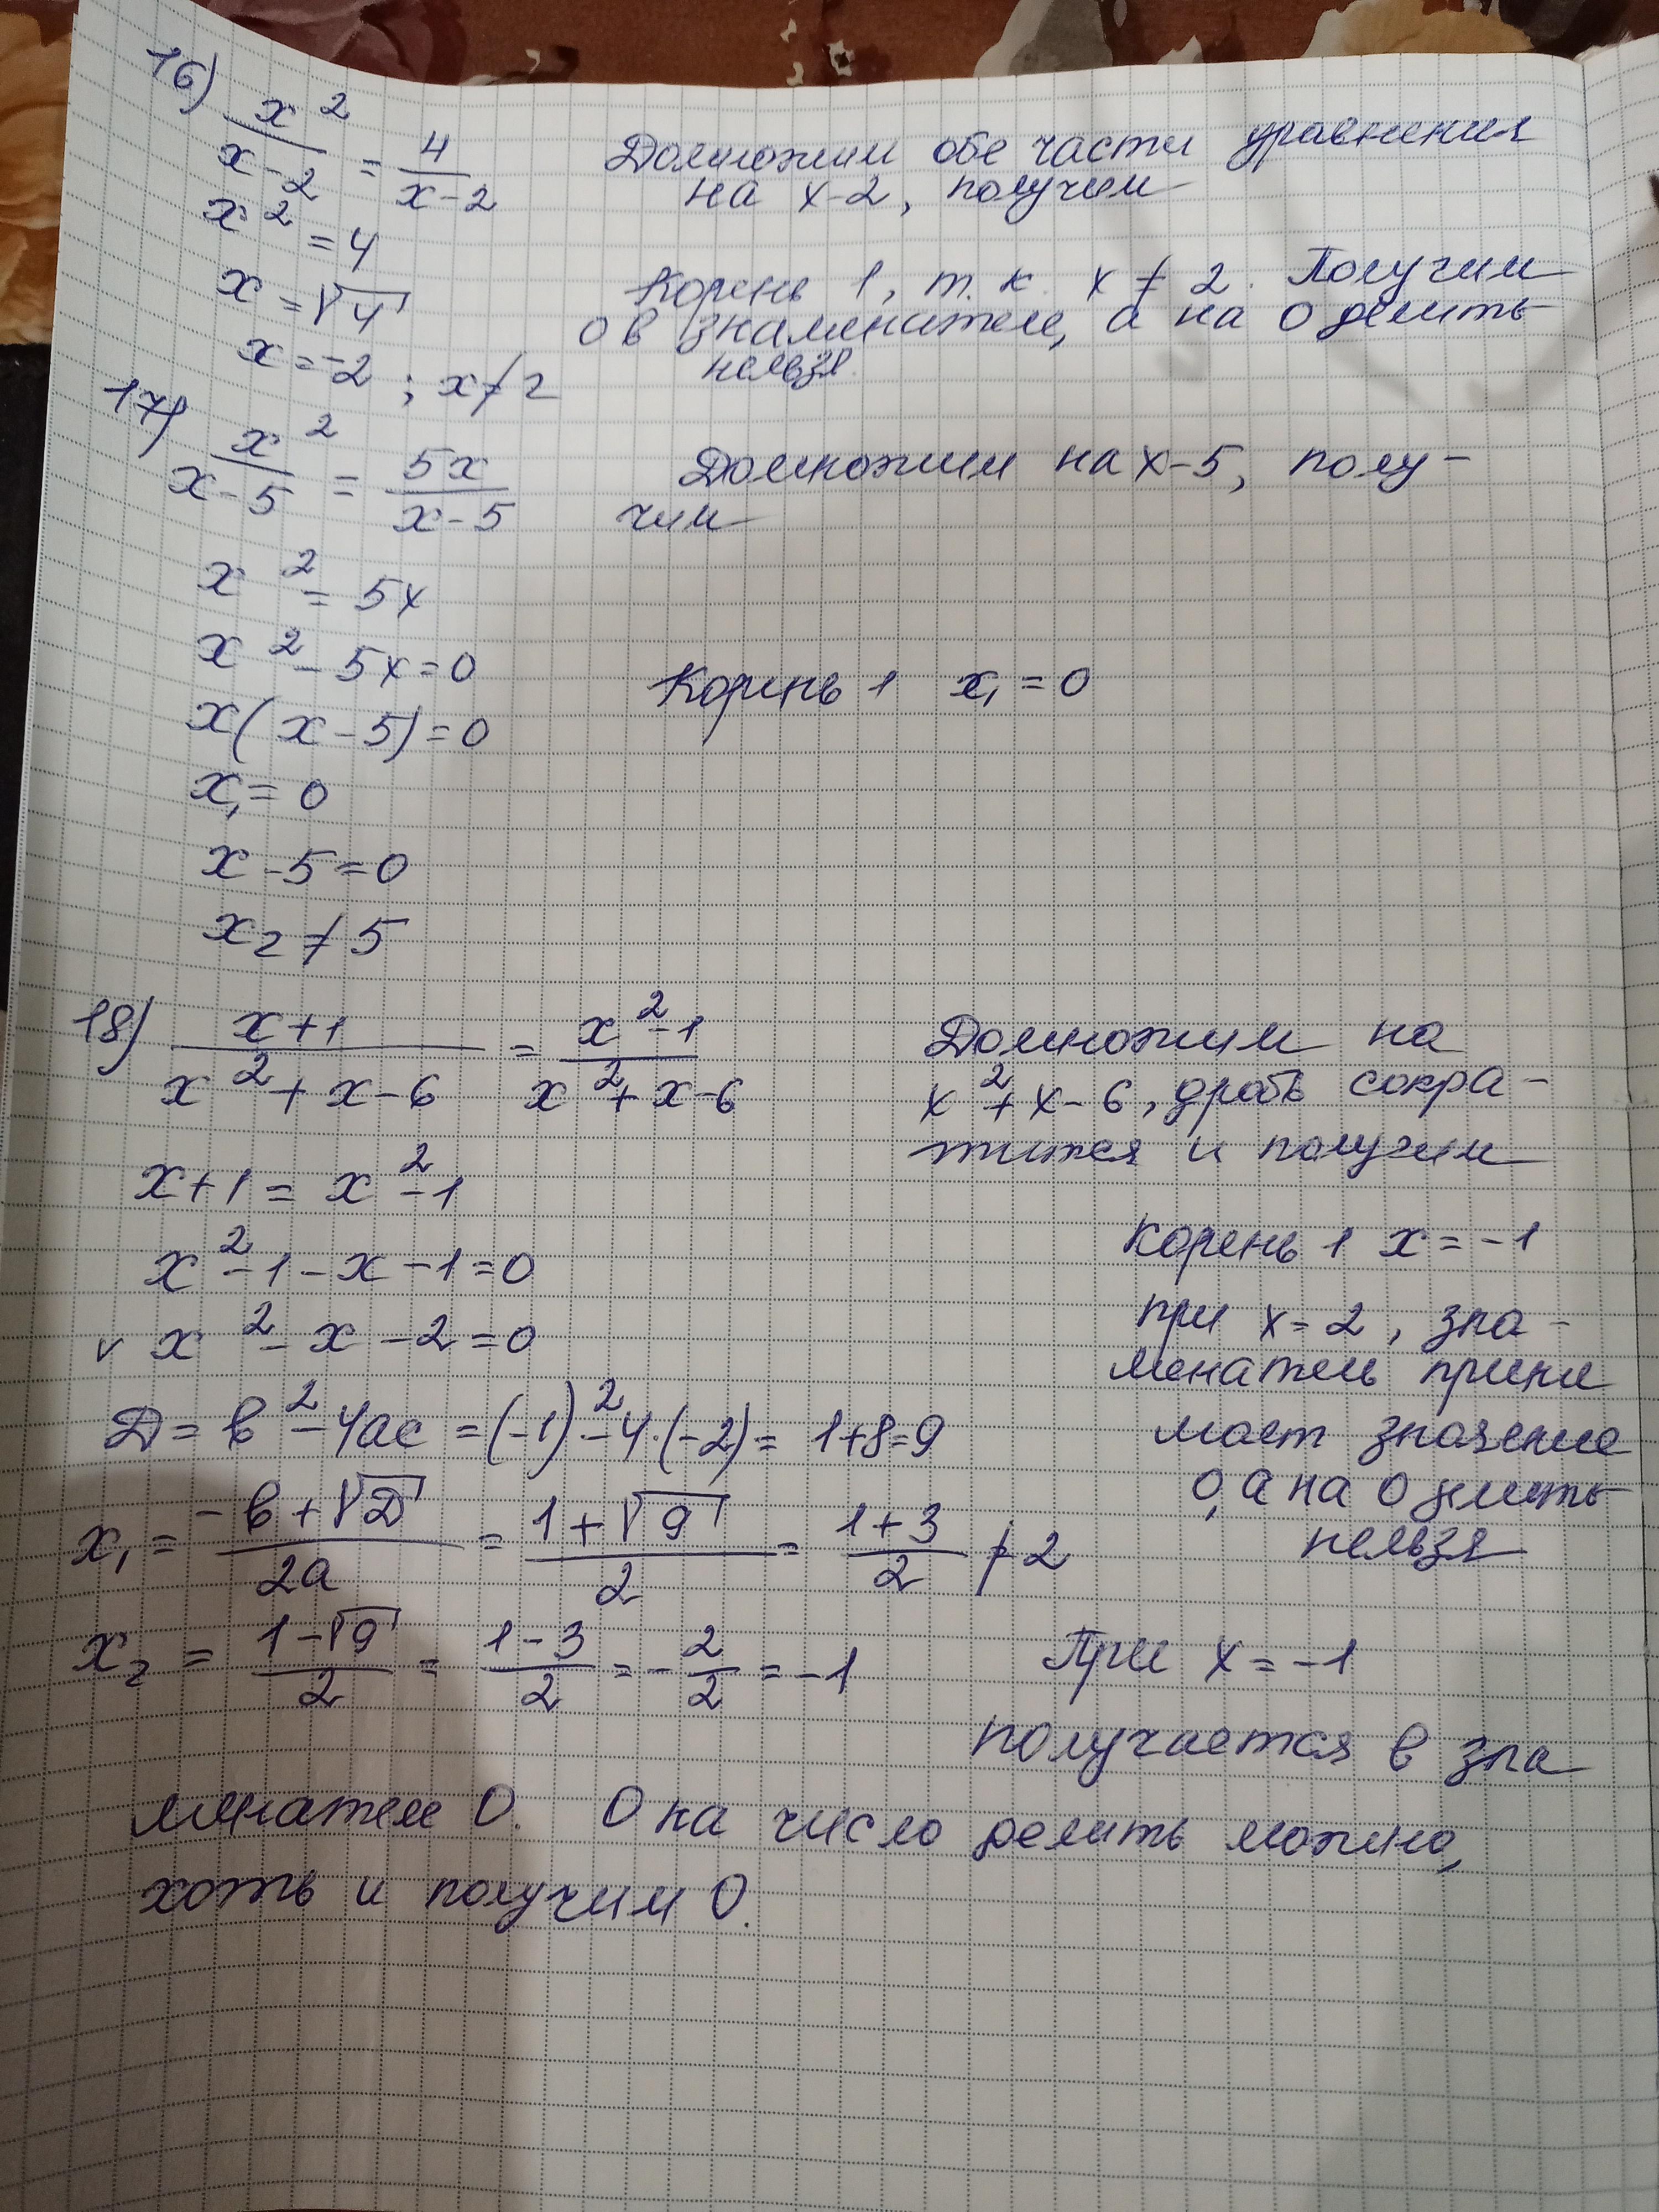 16)
x²/(x-2) = 4/(x-2) Домножим обе части уравнения
на x-2, получим
x² = 4
x = √4 Корень 1, т.к. x ≠ 2. Получим
0 в знаменателе, а на 0 делить
нельзя.
x = -2 ; x ≠ 2
17)
x²/(x-5) = 5x/(x-5) Домножим на x-5, полу-
чим
x² = 5x
x² - 5x = 0 Корень 1 x₁ = 0
x(x-5) = 0
x₁ = 0
x - 5 = 0
x₂ ≠ 5
18) (x+1)/(x²+x-6) = (x²-1)/(x²+x-6) Домножим на
x²+x-6, дробь сокра-
тится и получим
x+1 = x²-1
x²-1-x-1=0 Корень 1 x = -1
v x²-x-2=0 при x=2, зна-
менатель прини
мает значение
0, а на 0 делить
нельзя
Д = b²-4ac = (-1)²-4·(-2) = 1+8=9
x₁ = (-b+√Д)/2a = (1+√9)/2 = (1+3)/2 ≠ 2
x₂ = (1-√9)/2 = (1-3)/2 = -2/2 = -1 При x = -1
получается в зна
менателе 0. 0 на число делить можно,
хоть и получим 0.